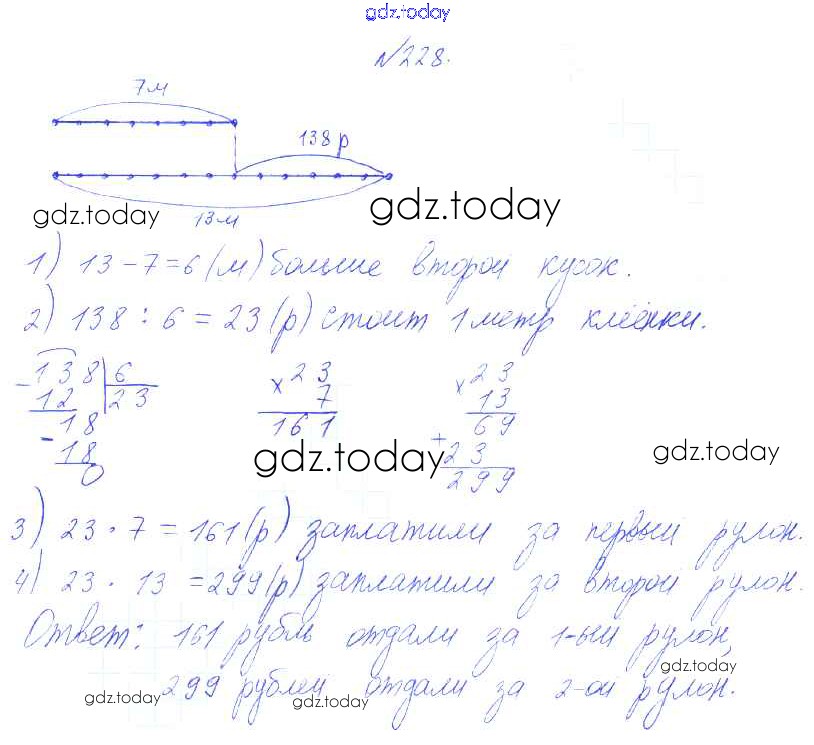 gdz.today
№228.
7м
138р
13м
gdz.today
gdz.today
1) 13-7=6(м) больше второй кусок.
2) 138:6=23(р) стоит 1 метр клеёнки.
138 6
- 12 23
18
- 18
0
× 23
7
161
× 23
13
69
+ 23
299
gdz.today
gdz.today
3) 23·7=161(р) заплатили за первый рулон.
4) 23·13=299(р) заплатили за второй рулон.
Ответ: 161 рубль отдали за 1-ый рулон,
gdz.today
299 рублей отдали за 2-ой рулон.
gdz.today
gdz.today